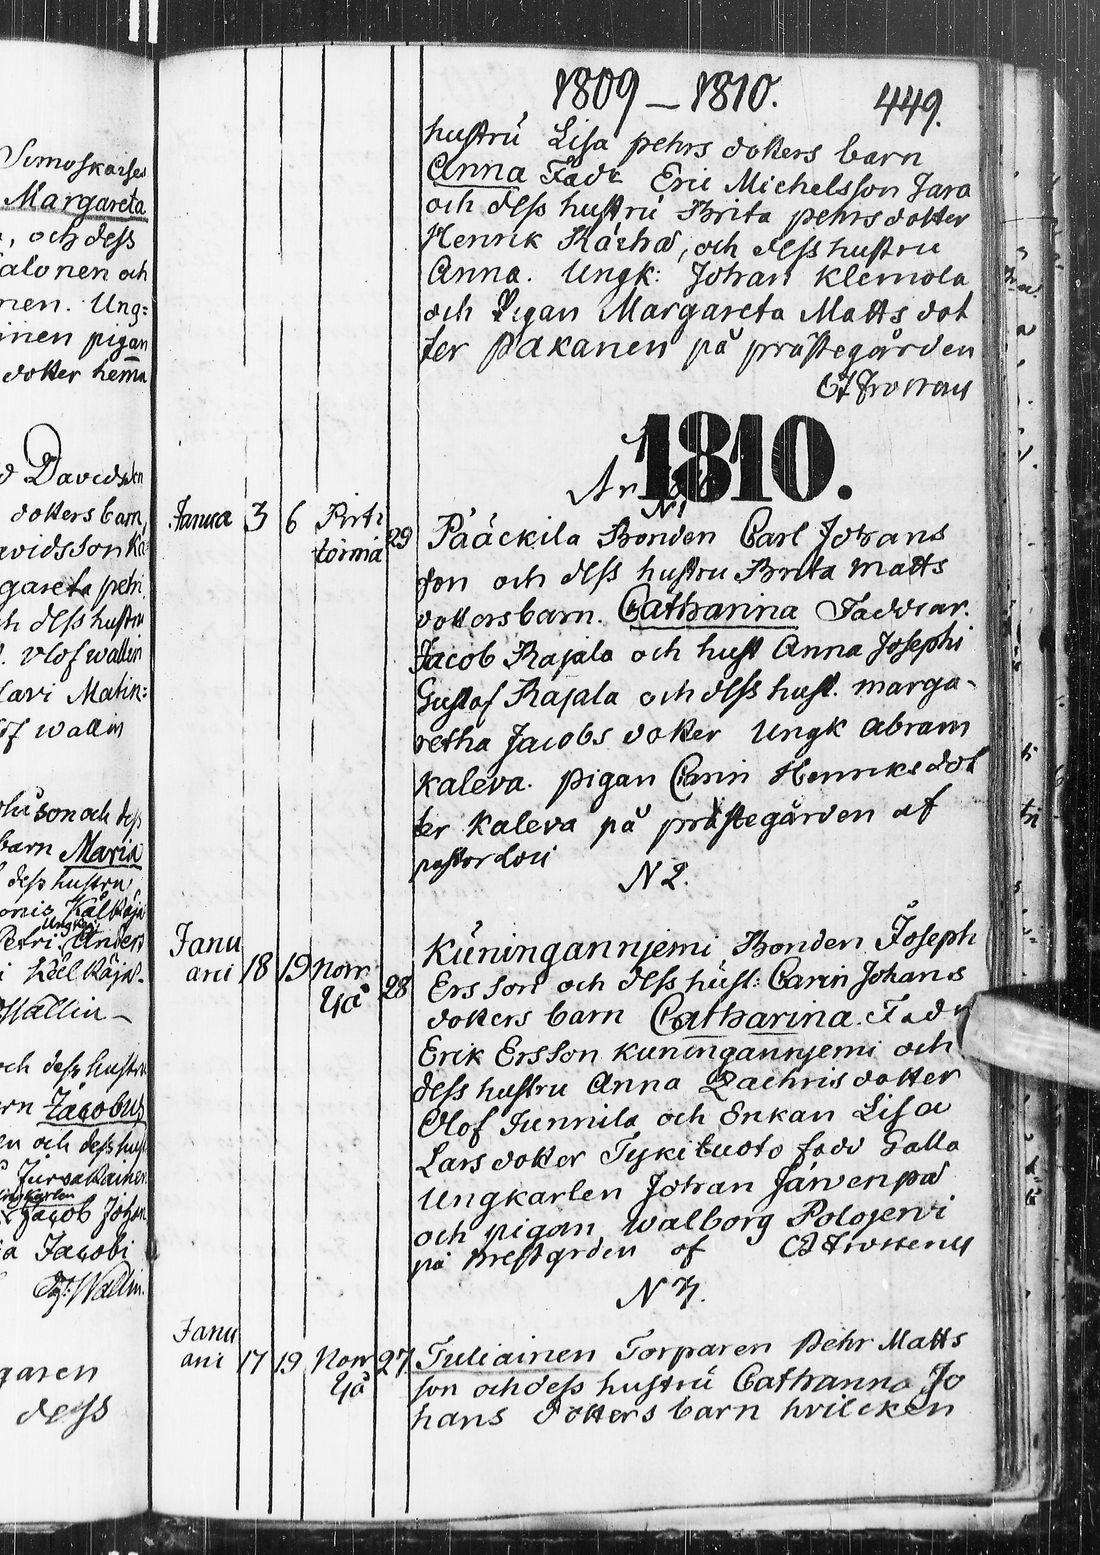 Simoskaises
Margareta
, och dess
alonen och
nen. Ung=
inen pigan
dotter hemma
Davidsson
dotters barn,
avidsson Ka
gareta petri
ch dess hustru
. Olof wallin
lavi Matin=
of wallin
son och dess
barn Maria
dess hustru
onis Kälkäjä
Petri. Ungk: Anders
i Kälkäjä.
Wallin _
och dess hustru
rn Jacobus
en och dess hust
Jursakainen
ungkarlen
Jacob Johan
ia Jacobi
Wallin.
garen
dess
1809 – 1810. 449.
hustru Lisa pehrs dotters barn
Anna Fadr Eric Michelsson Jara
och dess hustru Brita pehrs dotter
Henrik Räihä, och dess hustru
Anna. Ungk: Johan Klemola
och Pigan Margareta Matts dot
ter Pakanen på prästegården
1810.
N 1
Janua 3 6 Pirti
törmä 29
Pääckilä Bonden Carl Johans
son och dess hustru Brita Matts
dottersbarn. Catharina Faddrar.
Jacob Rajala och hust Anna Josephi
Gustof Rajala och dess hust. marga-
retha Jacobs dotter Ungk Abram
Kaleva. pigan Carin Henriks dot
ter Kaleva på prästegården af
N 2.
Janu
ari 18 19 Norr
Yå 28
Kuningannjemi Bonden Joseph
Ersson och dess hust: Carin Johans
dotters barn Catharina. Fadr
Erik Ersson kuningannjemi och
dess hustru Anna Zachris dotter
Olof Junnila och Enkan Lisa
Lars dotter Tykituoto fadd Galla
Ungkarlen Johan Järvenpä
och pigan walborg Polojervi
på Prestgrden af
N 3.
Janu
ari 17 19 Norr
Yå 27
Tuliainen Torparen Pehr Matts
son och dess hustru Catharina Jo
hans dotters barn hvilcken